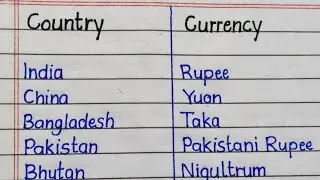 Country Currency
India Rupee
China Yuan
Bangladesh Taka
Pakistan Pakistani Rupee
Bhutan Nigultrum